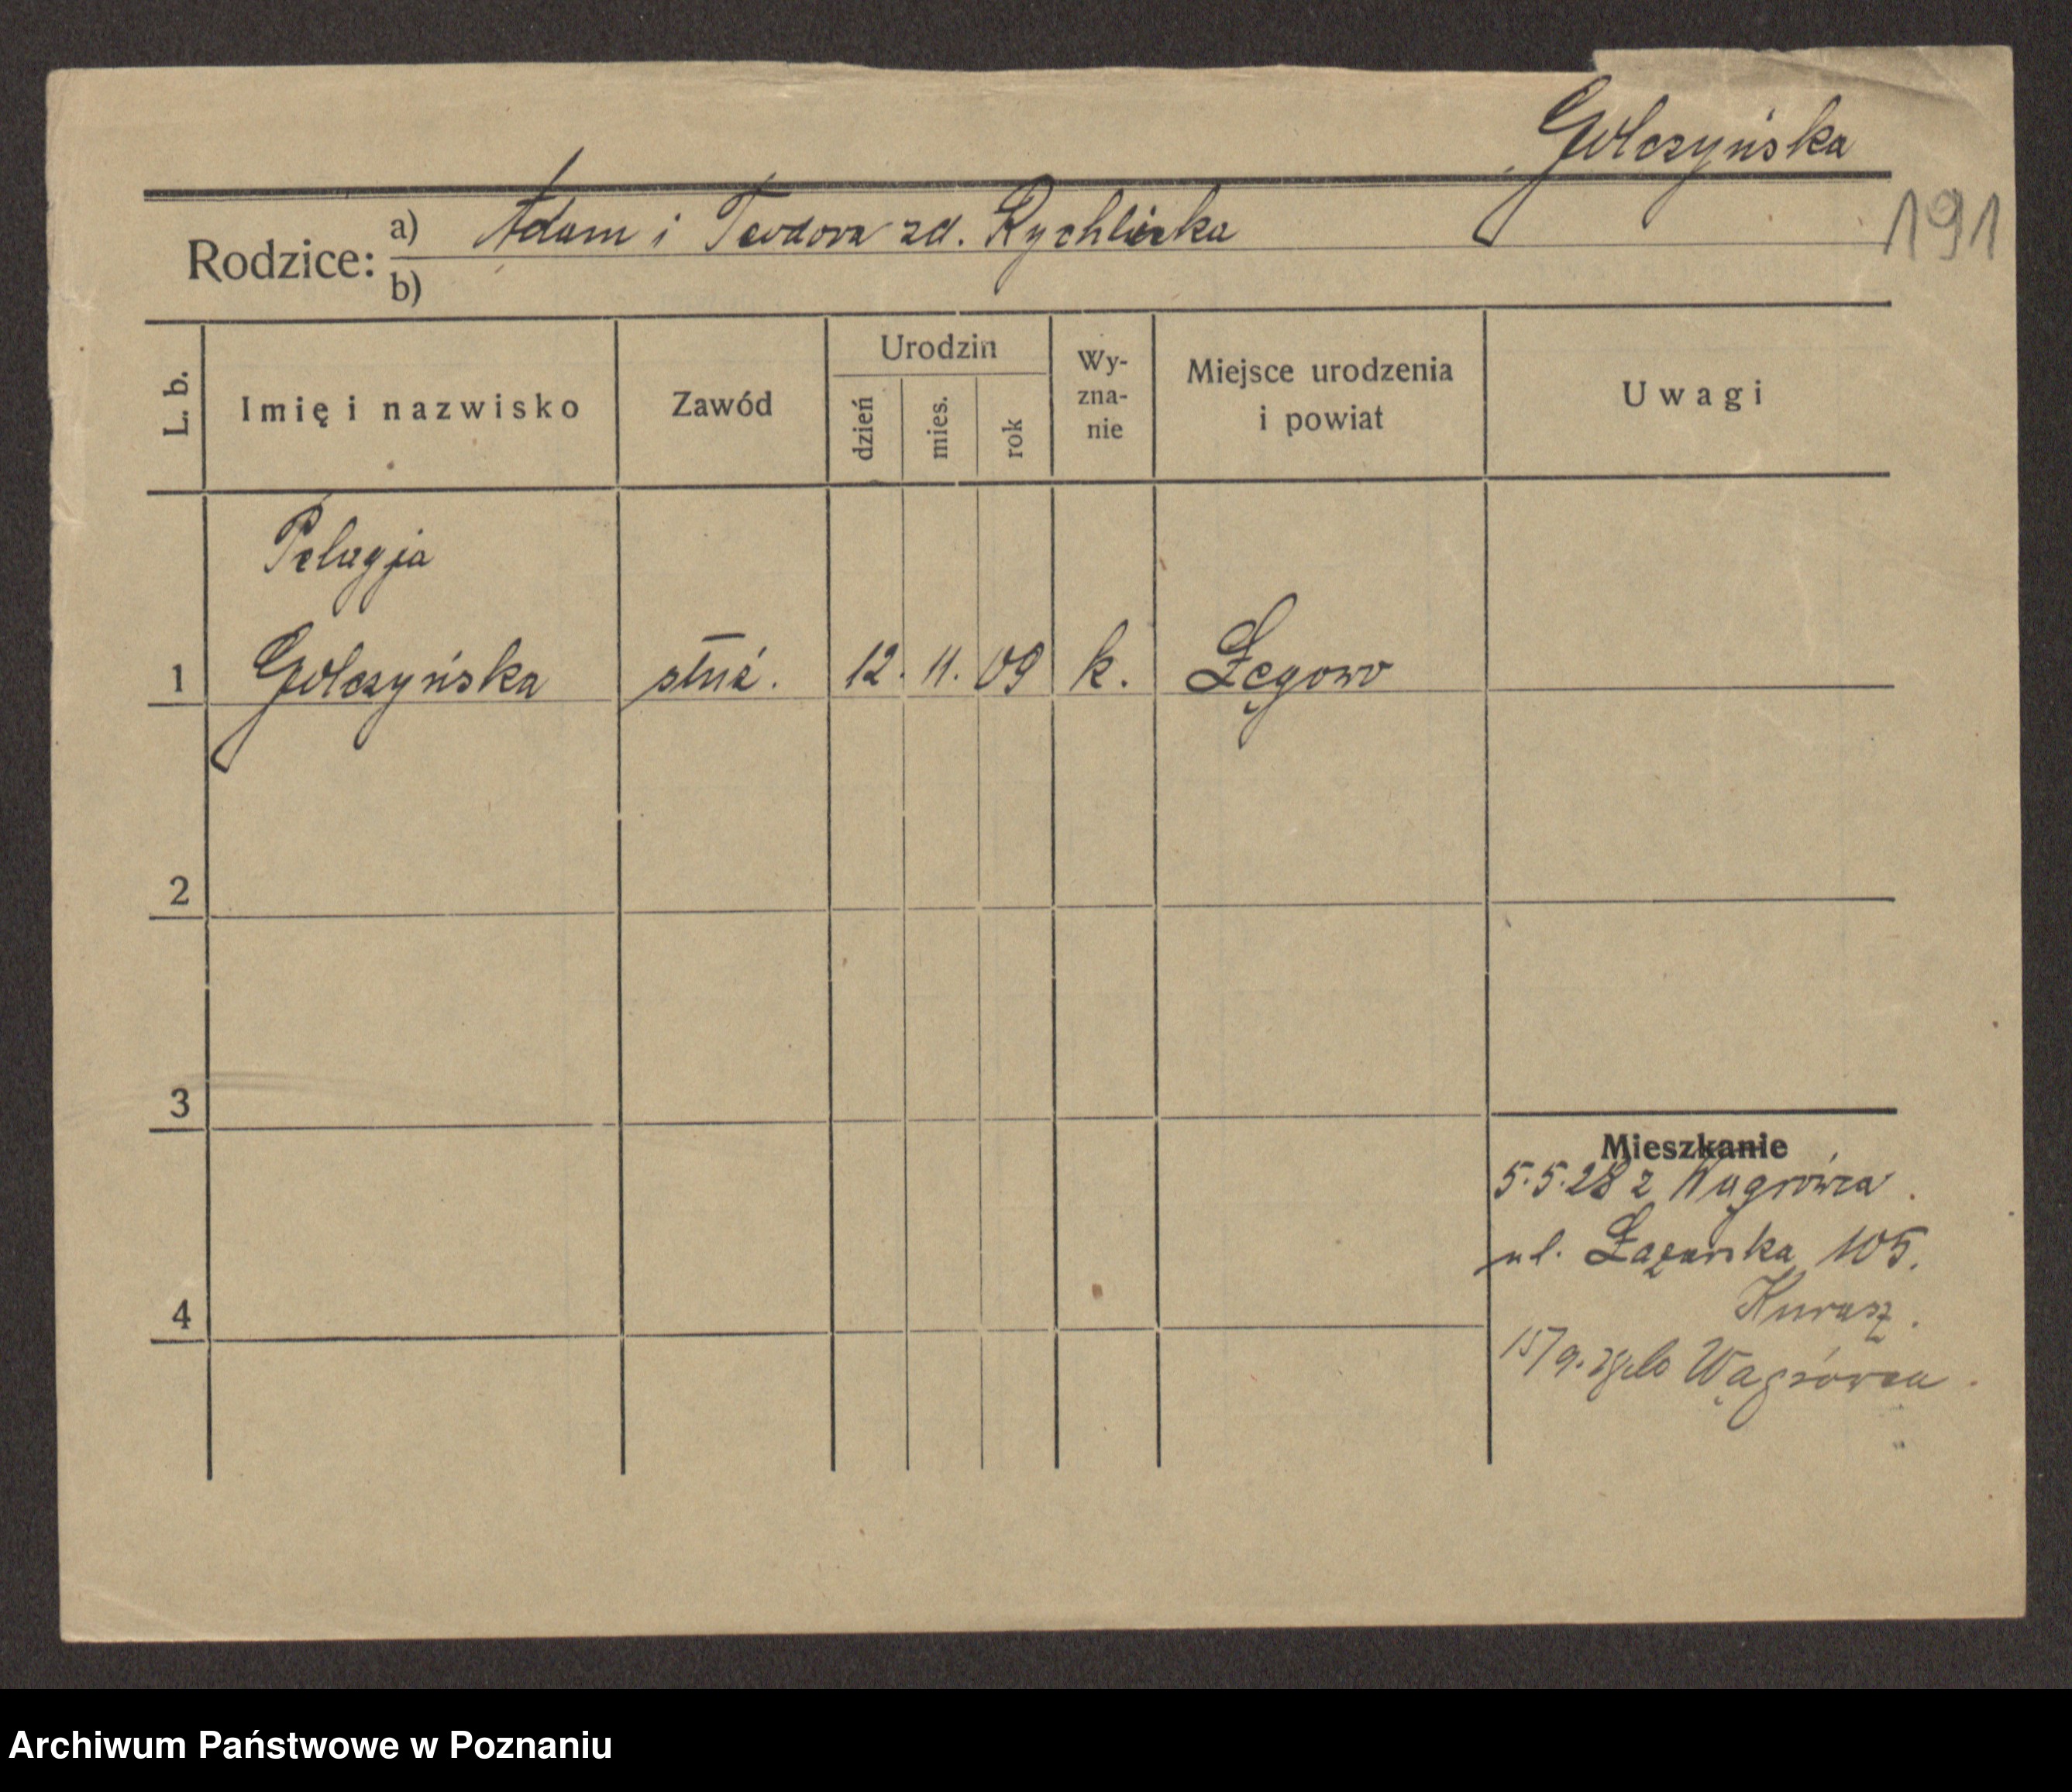 Golczyńska
191
Rodzice: a) Adam i Teodora zd. Rychlicka
b)
L. b.
Imię i nazwisko
Zawód
Urodzin
dzień
mies.
rok
Wy-
zna-
nie
Miejsce urodzenia
i powiat
Uwagi
Pelagja
1 Golczyńska służ. 12. 11. 09 k. Łęgowo
2
3
Mieszkanie
5.5.28 z Wągrówca.
ul. Łazarska 105.
4
15/9. 28 do Wągrówca.
Archiwum Państwowe w Poznaniu